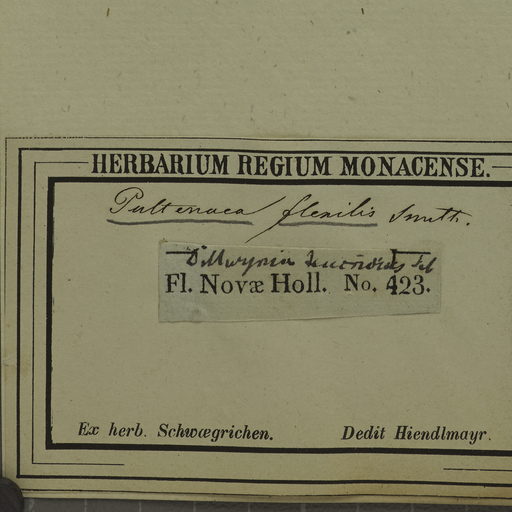 HERBARIUM REGIUM MONACENSE.
Pultenaea flexilis Smith.
Dillwynia
Fl. Novæ Holl. No. 423.
Ex herb. Schwægrichen. Dedit Hiendlmayr.